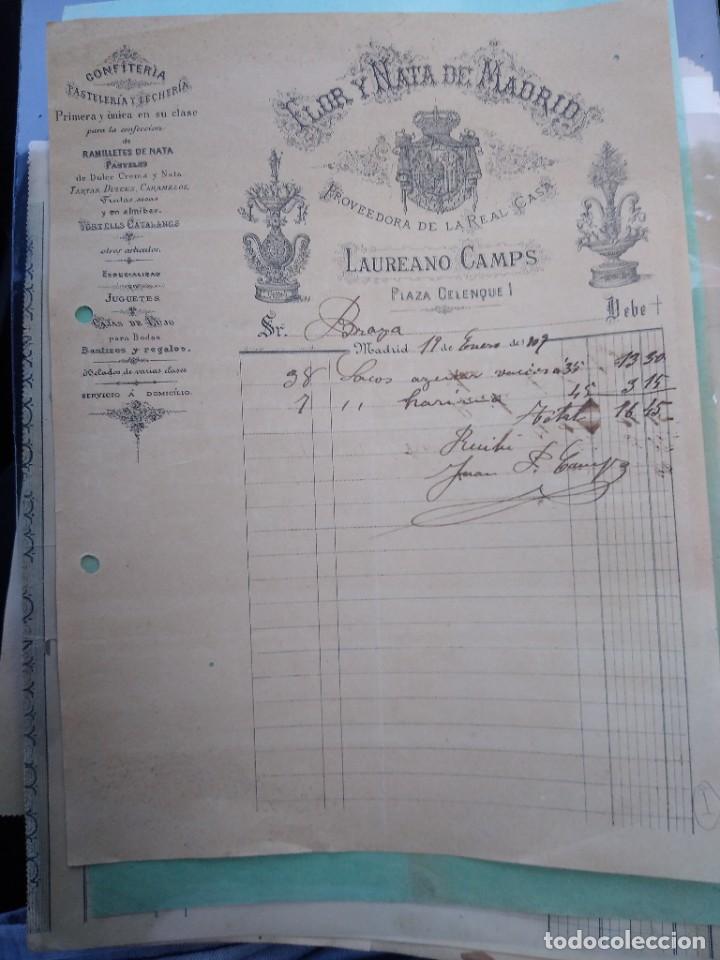 CONFITERÍA
PASTELERÍA Y LECHERÍA
Primera y única en su clase
para la confeccion
de
RAMILLETES DE NATA
PASTELES
de Dulce Crema y Nata
TARTAS, DULCES, CARAMELOS,
Frutas secas
y en almibar.
TORTELLS CATALANES
otros articulos.
ESPECIALIDAD
JUGUETES
CAJAS DE LUJO
para Bodas
Bautizos y regalos.
Helados de varias clases
SERVICIO Á DOMICILIO.
FLOR Y NATA DE MADRID
PROVEEDORA DE LA REAL CASA
LAUREANO CAMPS
PLAZA CELENQUE 1
Debe
Sr. Braza
Madrid 19 de Enero de 1909
38 Sacos azucar vacios á 35 13 30
7 ,, harina 45 3 15
Total 16 45
Recibi
Juan P.
1
todocoleccion.net